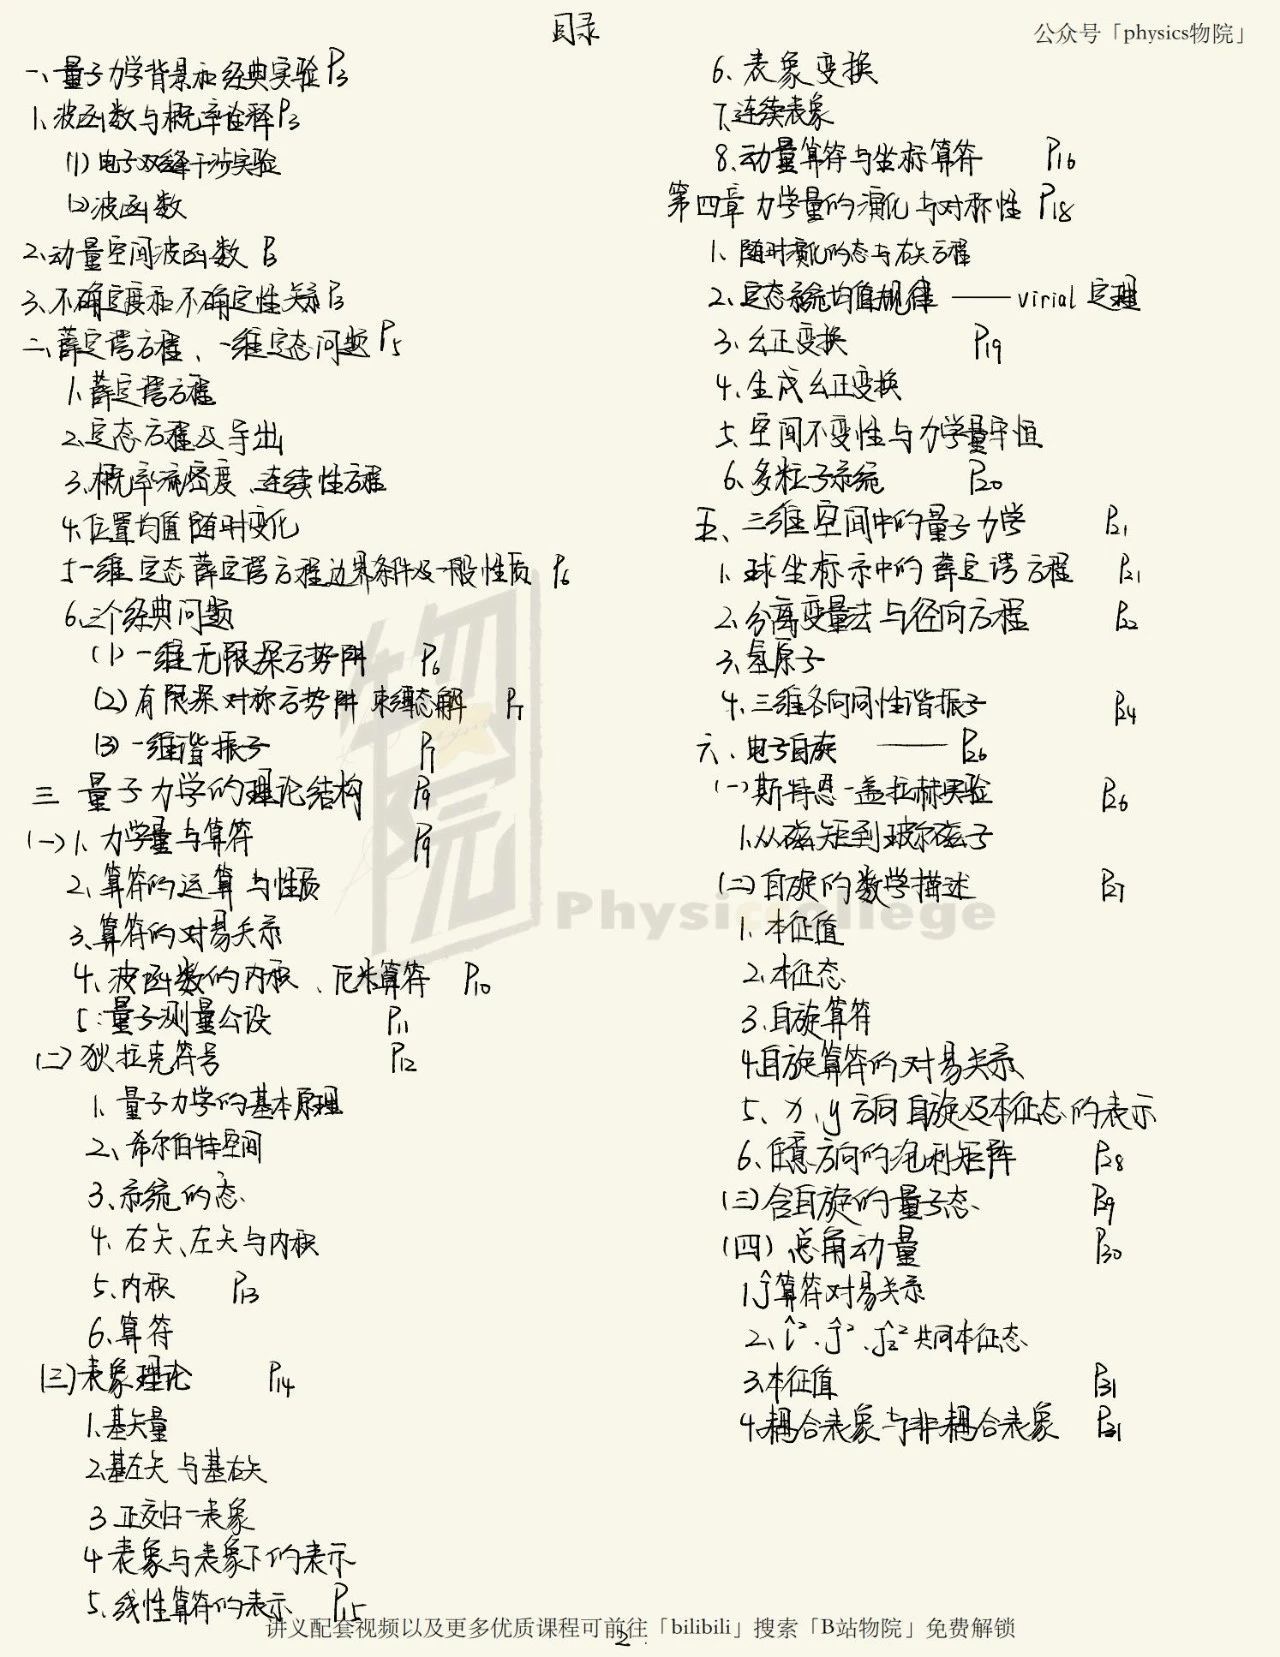 目录
公众号「physics物院」
一、量子力学背景和经典实验 P3
1、波函数与概率诠释 P3
(1) 电子双缝干涉实验
(2) 波函数
2、动量空间波函数 P3
3、不确定度和不确定性关系 P3
二、薛定谔方程、一维定态问题 P5
1、薛定谔方程
2、定态方程及导出
3、概率流密度、连续性方程
4、位置均值随时变化
5、一维定态薛定谔方程边界条件及一般性质 P6
6、三个经典问题
(1) 一维无限深方势阱 P6
(2) 有限深对称方势阱束缚态解 P7
(3) 一维谐振子 P7
三 量子力学的理论结构 P9
(一) 1、力学量与算符 P9
2、算符的运算与性质
3、算符的对易关系
4、波函数的内积、厄米算符 P10
5:量子测量公设 P11
(二) 狄拉克符号 P12
1、量子力学的基本原理
2、希尔伯特空间
3、系统的态
4、右矢、左矢与内积
5、内积 P13
6、算符
(三) 表象理论 P14
1、基矢量
2、基左矢与基右矢
3 正交归一表象
4 表象与表象下的表示
5、线性算符的表示 P15
6、表象变换
7、连续表象
8、动量算符与坐标算符 P16
第四章 力学量的演化与对称性 P18
1、随时演化的态与右矢方程
2、定态系统均值规律 —— virial 定理
3、幺正变换 P19
4、生成幺正变换
5、空间不变性与力学量守恒
6、多粒子系统 P20
五、三维空间中的量子力学 P21
1、球坐标系中的薛定谔方程 P21
2、分离变量法与径向方程 P22
3、氢原子
4、三维各向同性谐振子 P24
六、电子自旋 —— P26
(一) 斯特恩-盖拉赫实验 P26
1、从磁矩到玻尔磁子
(二) 自旋的数学描述 P27
1、本征值
2、本征态
3、自旋算符
4、自旋算符的对易关系
5、x、y方向自旋及本征态的表示
6、任意方向的泡利矩阵 P28
(三) 含自旋的量子态 P29
(四) 总角动量 P30
1、Ĵ算符对易关系
2、l̂²、ĵ²、ĵz² 共同本征态
3、本征值 P31
4、耦合表象与非耦合表象 P31
物院
Physicollege
讲义配套视频以及更多优质课程可前往「bilibili」搜索「B站物院」免费解锁
2